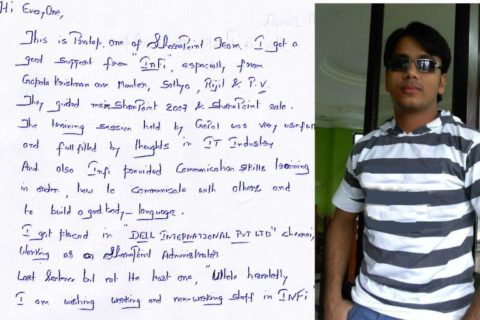 Hi EveryOne,
This is Pratap, one of SharePoint Team. I got a
good support from "InFi", especially from
Gopala Krishnan our Mentor, Sathya, Rijil & P.V.
They guided me in SharePoint 2007 & SharePoint 2010.
The training session held by Gopal was very useful
and fullfilled by thoughts in IT Industry
And also Infi provided Communication skills learning
in order, how to communicate with others and
to build a good body-language.
I got placed in "DELL INTERNATIONAL PVT LTD" Chennai,
Working as a SharePoint Administrator
Last Sentence but not the least one, "Whole heartedly
I am wishing working and non-working staff in INFi"